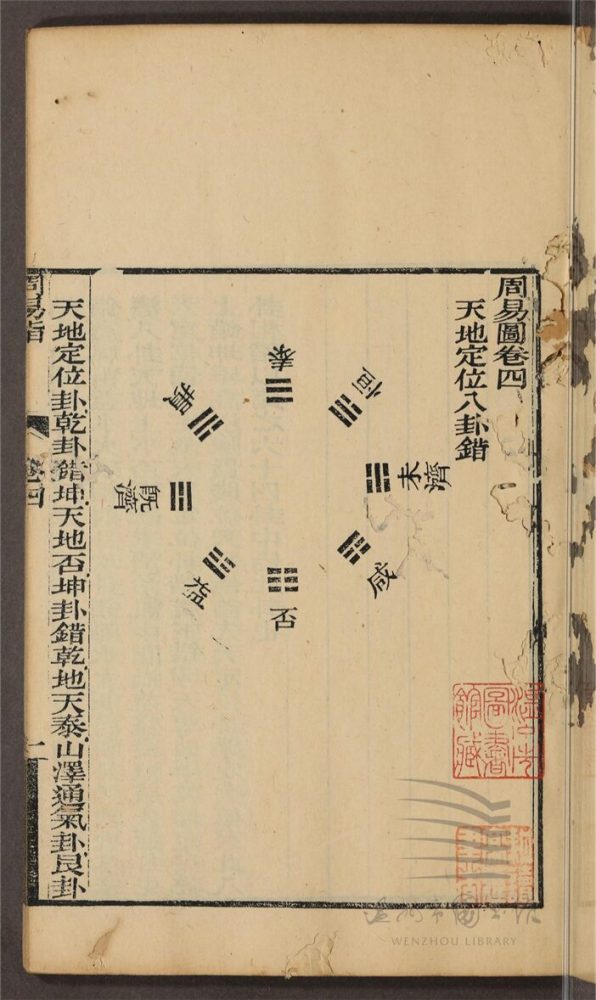 周易圖卷四
天地定位八卦錯
泰
恒
未濟
咸
否
益
旣濟
損
天地定位卦乾卦錯坤天地否坤卦錯乾地天泰山澤通氣卦艮卦
周易指
卷四
一
溫州市圖書館藏
溫州市圖書館
WENZHOU LIBRARY